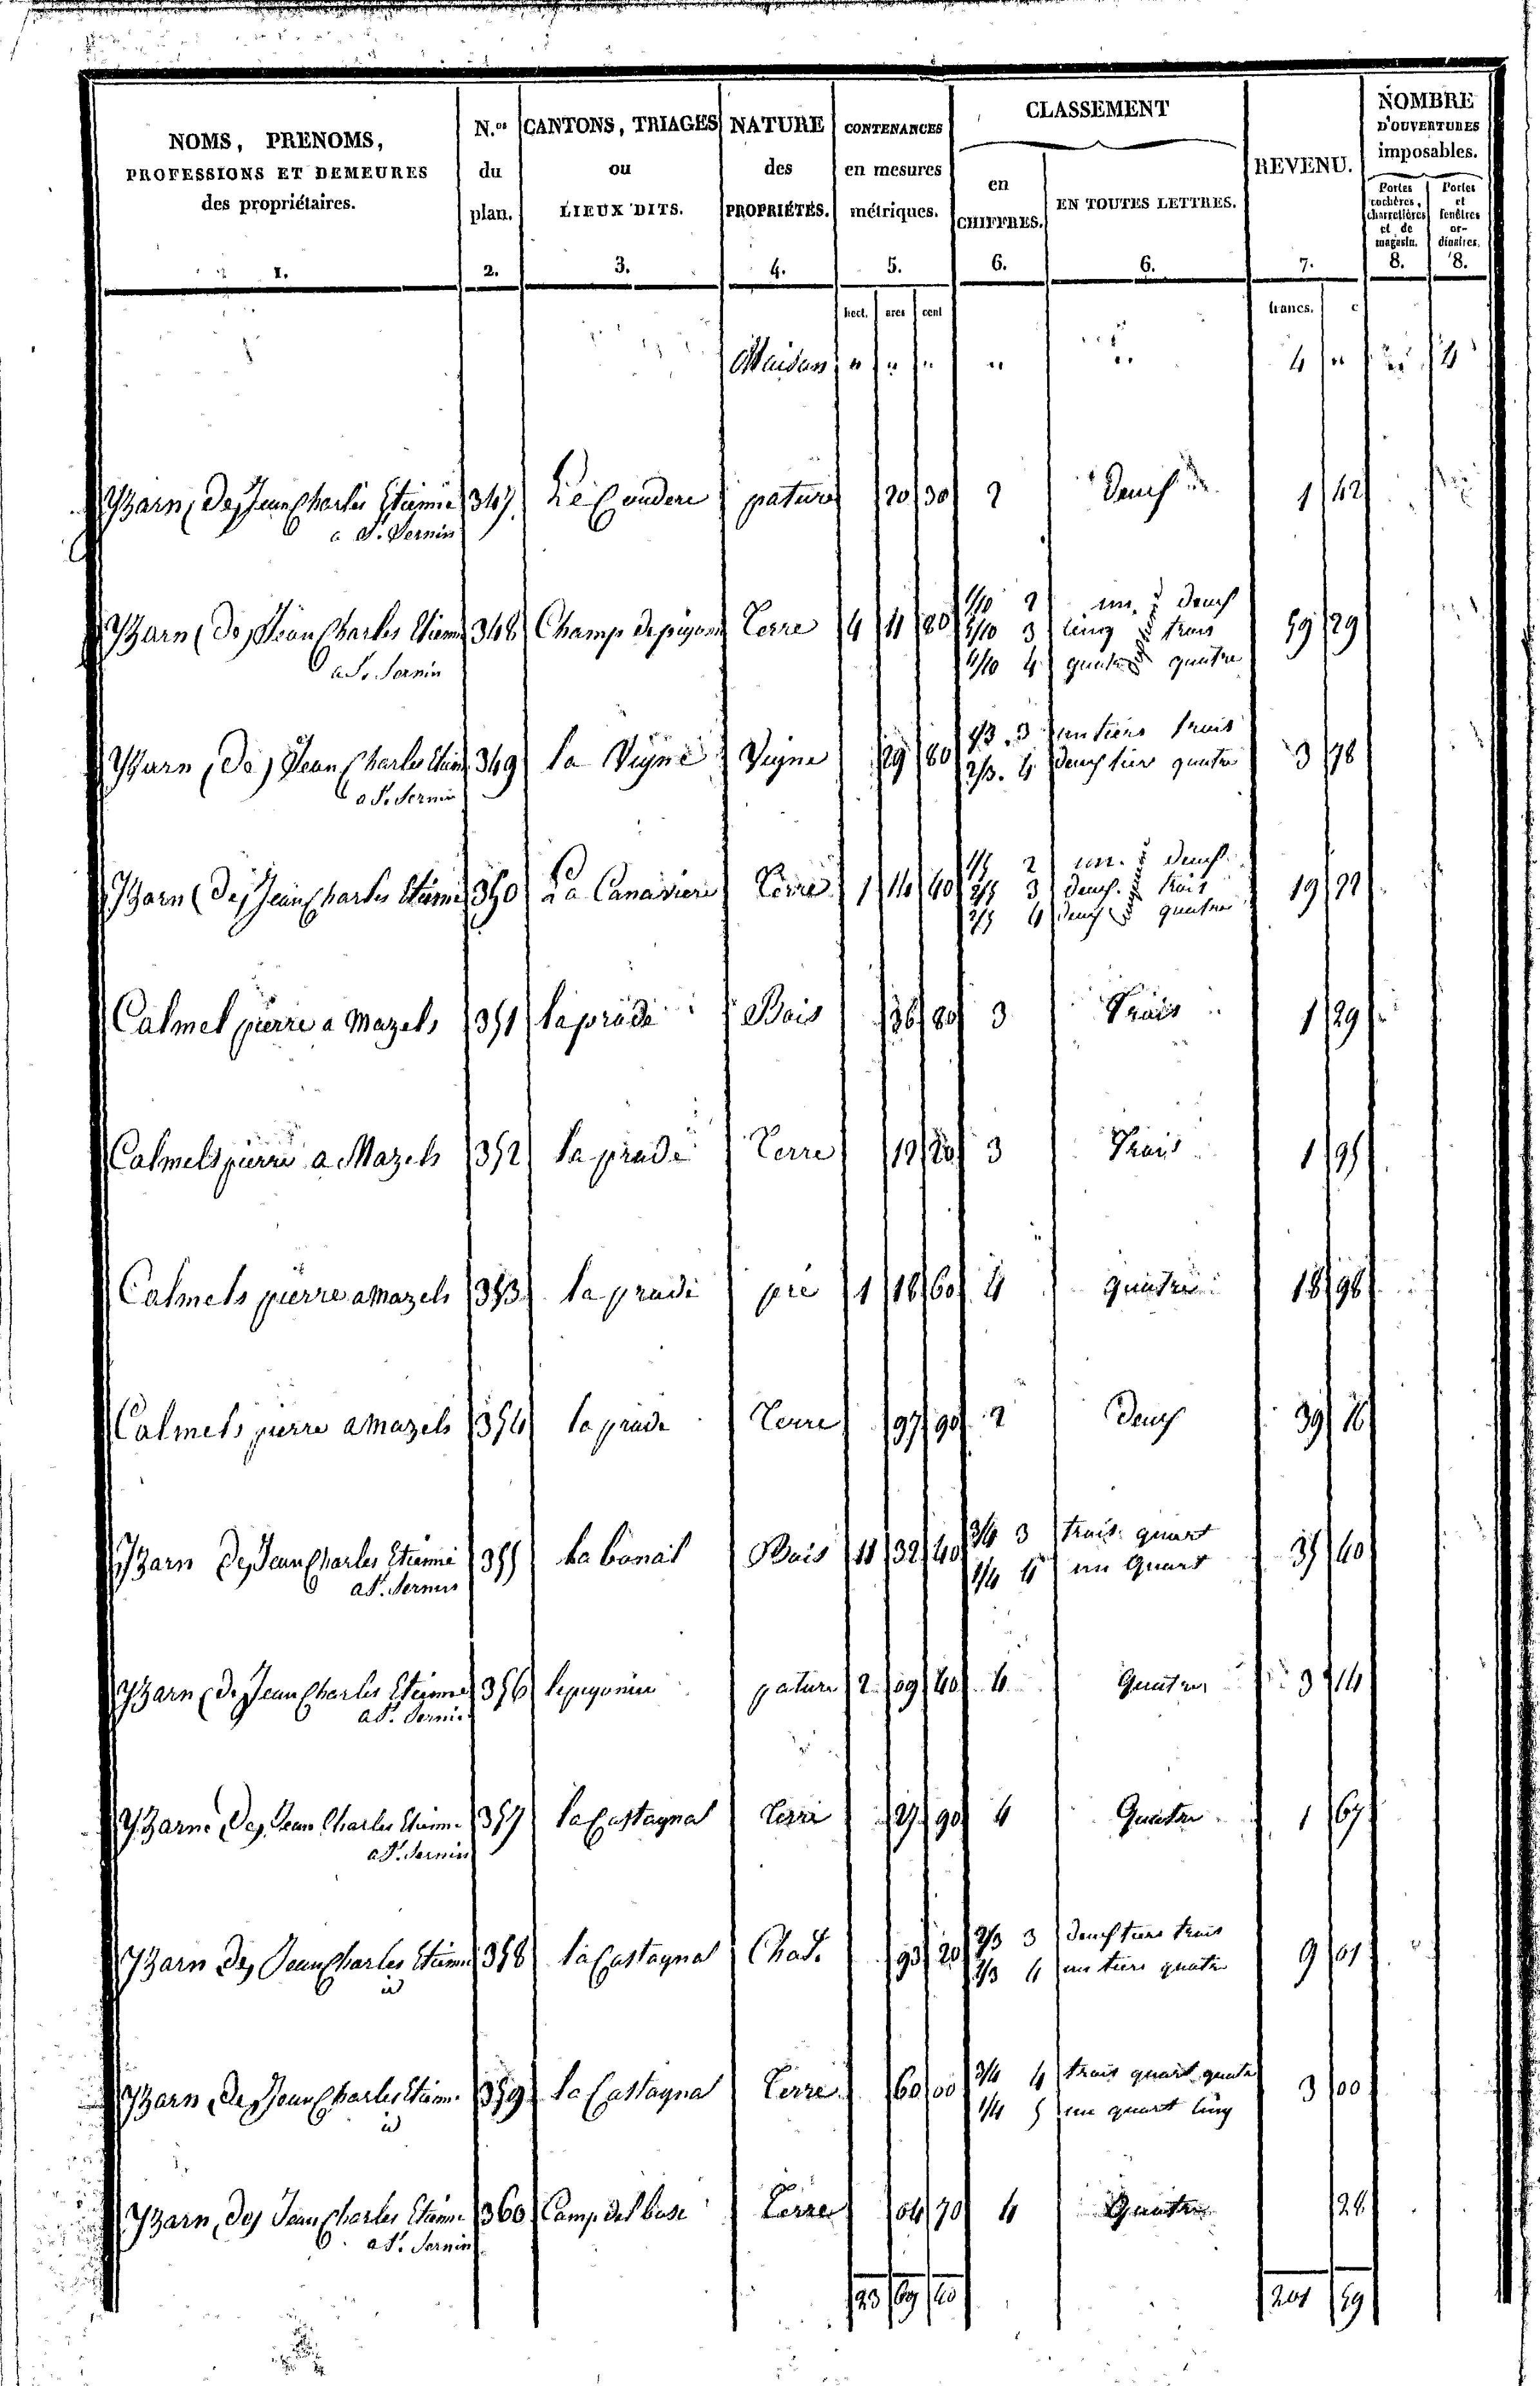 NOMS, PRENOMS, PROFESSIONS ET DEMEURES des propriétaires. 1.
N.os du plan. 2.
CANTONS, TRIAGES ou LIEUX DITS. 3.
NATURE des PROPRIÉTÉS. 4.
CONTENANCES en mesures métriques. 5.
CLASSEMENT
en CHIFFRES. 6.
EN TOUTES LETTRES. 6.
REVENU. 7.
NOMBRE D'OUVERTURES imposables.
Portes cochères, charretières et de magasin. 8.
Portes et fenêtres ordinaires. 8.
hect. ares cent francs. c
Maison " " " " " 4 " " 4
Yzarn (de) Jean Charles Etienne 347 Le Couderc pature 20 30 2 Deux 1 42
a St. Sernin
Yzarn (de) Jean Charles Etienne 348 Champ de pigeon Terre 4 11 80 1/10 2 un deux 59 29
5/10 3 cinq trois
a St. Sernin 4/10 4 quatre quatre
Yzarn (de) Jean Charles Etien 349 la Vigne Vigne 29 80 1/3 3 un tiers trois 3 78
a St. Sernin 2/3 4 deux tiers quatre
Yzarn (de) Jean Charles Etienne 350 La Canaviere Terre 1 14 40 1/5 2 un deux 19 22
2/5 3 deux trois
2/5 4 deux quatre
Calmel pierre a Mazels 351 la prade Bois 36 80 3 Trois 1 29
Calmels pierre a Mazels 352 la prade Terre 12 20 3 Trois 1 95
Calmels pierre a Mazels 353 la prade pré 1 18 60 4 quatre 18 98
Calmels pierre a Mazels 354 la prade Terre 97 90 2 Deux 39 16
Yzarn (de) Jean Charles Etienne 355 La bonal Bois 11 32 40 3/4 3 trois quart 35 40
a St. Sernin 1/4 4 un Quart
Yzarn (de) Jean Charles Etienne 356 pature 2 09 40 4 Quatre 3 14
a St. Sernin
Yzarn (de) Jean Charles Etienne 357 la Castagnal Terre 27 90 4 Quatre 1 67
a St. Sernin
Yzarn (de) Jean Charles Etienne 358 la Castagnal Chat. 93 20 2/3 3 deux tiers trois 9 01
id 1/3 4 un tiers quatre
Yzarn (de) Jean Charles Etienne 359 la Castagnal Terre 60 00 3/4 4 trois quart quatre 3 00
id 1/4 5 un quart cinq
Yzarn (de) Jean Charles Etienne 360 Camp del bosc Terre 04 70 4 Quatre 28
a St. Sernin
23 69 40 201 59